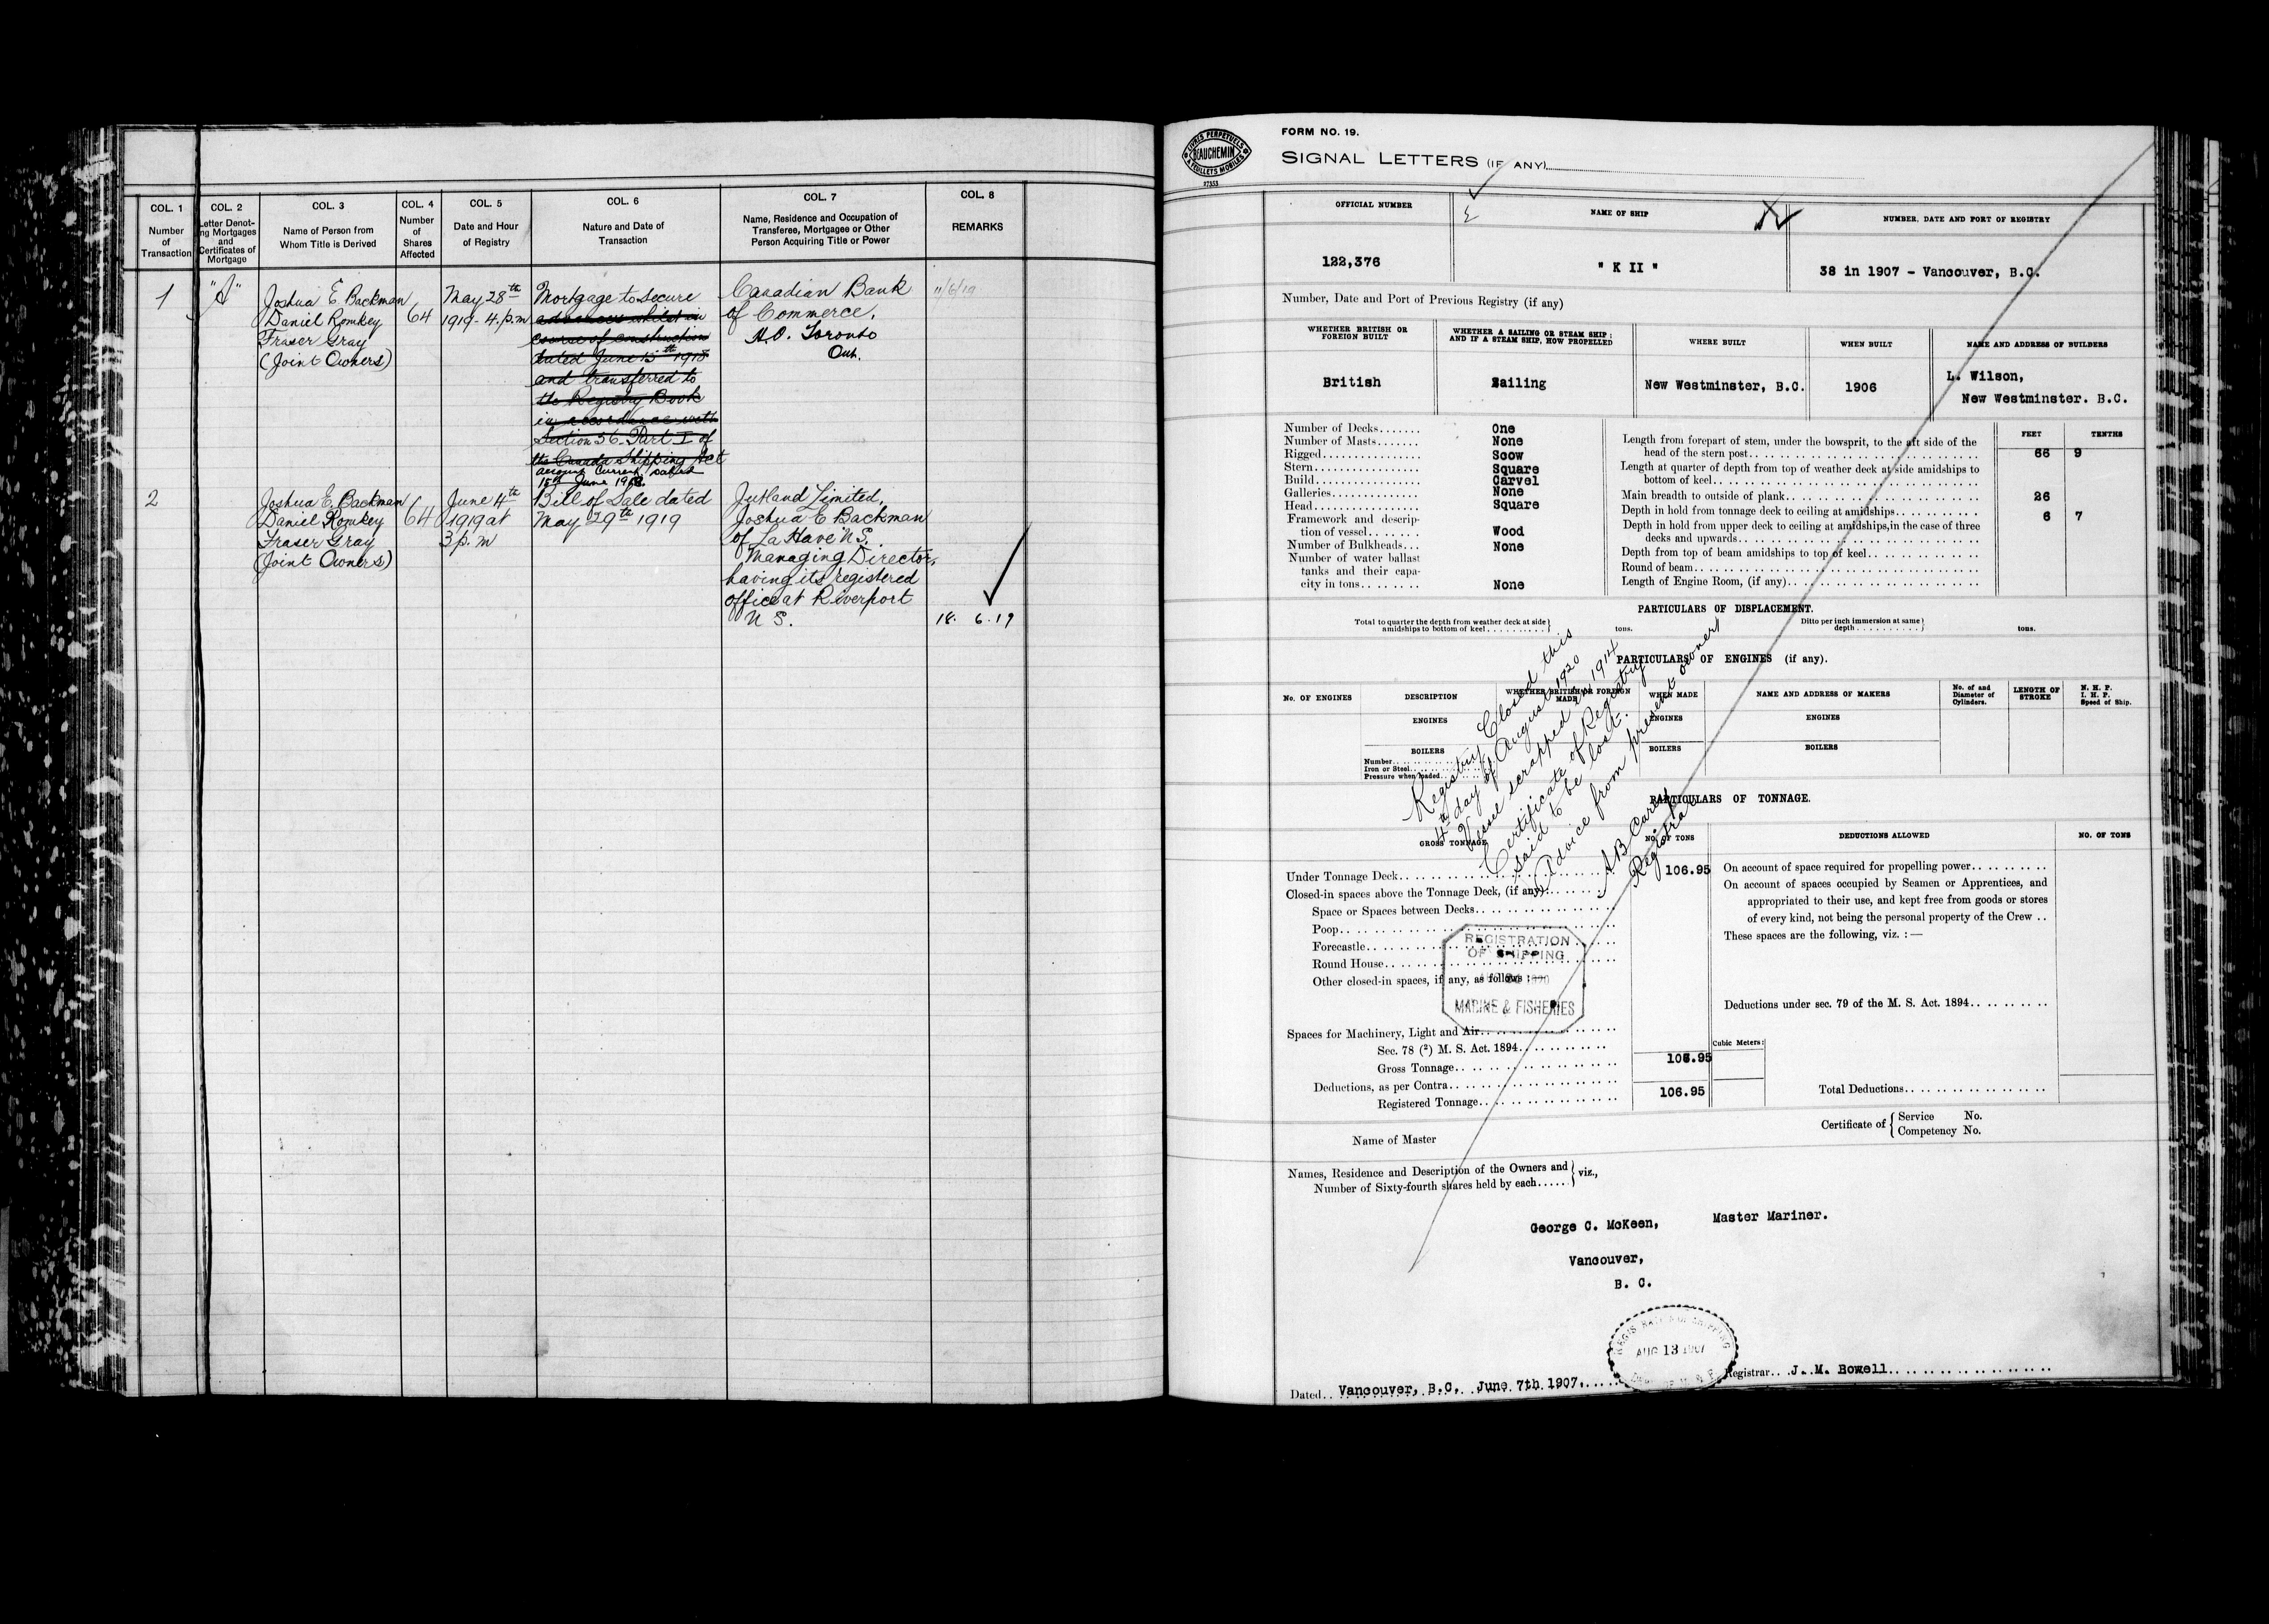 COL. 1
Number
of
Transaction
COL. 2
Letter Denot-
ing Mortgages
and
Certificates of
Mortgage
COL. 3
Name of Person from
Whom Title is Derived
COL. 4
Number
of
Shares
Affected
COL. 5
Date and Hour
of Registry
COL. 6
Nature and Date of
Transaction
COL. 7
Name, Residence and Occupation of
Transferee, Mortgagee or Other
Person Acquiring Title or Power
COL. 8
REMARKS
1
"A"
Joshua E. Backman
Daniel Romkey
Fraser Gray
(Joint Owners)
64
May 28th
1919 - 4. p.m
Mortgage to secure
advances whilst in
course of construction
dated June 15th 1918
and transferred to
the Registry Book
in accordance with
Section 56 - Part I of
the Canada Shipping Act
account current dated
15th June 1918.
Canadian Bank
of Commerce.
H.O. Toronto
Ont.
11/6/19
2
Joshua E. Backman
Daniel Romkey
Fraser Gray
(Joint Owners)
64
June 4th
1919 at
3 p.m
Bill of Sale dated
May 29th 1919
Jutland Limited,
Joshua E Backman
of La Have N.S.
Managing Director,
having its registered
office at Riverport
N S.
18. 6.19
LIVRES PERPETUELS
BEAUCHEMIN
A FEUILLETS MOBILES
27353
FORM NO. 19.
SIGNAL LETTERS (IF ANY)
OFFICIAL NUMBER
122,376
NAME OF SHIP
" K II "
NUMBER, DATE AND PORT OF REGISTRY
38 in 1907 - Vancouver, B.C.
Number, Date and Port of Previous Registry (if any)
WHETHER BRITISH OR
FOREIGN BUILT
British
WHETHER A SAILING OR STEAM SHIP;
AND IF A STEAM SHIP, HOW PROPELLED
Sailing
WHERE BUILT
New Westminster, B.C.
WHEN BUILT
1906
NAME AND ADDRESS OF BUILDERS
L. Wilson,
New Westminster. B.C.
Number of Decks....... One
Number of Masts....... None
Rigged................ Scow
Stern................. Square
Build................. Carvel
Galleries.............. None
Head................. Square
Framework and descrip-
tion of vessel....... Wood
Number of Bulkheads... None
Number of water ballast
tanks and their capa-
city in tons........ None
FEET TENTHS
Length from forepart of stem, under the bowsprit, to the aft side of the
head of the stern post 66 9
Length at quarter of depth from top of weather deck at side amidships to
bottom of keel
Main breadth to outside of plank 26
Depth in hold from tonnage deck to ceiling at amidships 6 7
Depth in hold from upper deck to ceiling at amidships, in the case of three
decks and upwards
Depth from top of beam amidships to top of keel
Round of beam
Length of Engine Room, (if any)
PARTICULARS OF DISPLACEMENT.
Total to quarter the depth from weather deck at side
amidships to bottom of keel
tons.
Ditto per inch immersion at same
depth
tons.
PARTICULARS OF ENGINES (if any).
No. OF ENGINES
DESCRIPTION
WHETHER BRITISH OR FOREIGN
MADE
WHEN MADE
NAME AND ADDRESS OF MAKERS
No. of and
Diameter of
Cylinders.
LENGTH OF
STROKE
N. H. P.
I. H. P.
Speed of Ship.
ENGINES
ENGINES
ENGINES
BOILERS
BOILERS
BOILERS
Number
Iron or Steel
Pressure when loaded
Registry Closed this
4th day of August 1920
Vessel scrapped in 1914
Certificate of Registry
said to be lost.
(Advice from present owner)
A B Carey
Registrar
PARTICULARS OF TONNAGE.
GROSS TONNAGE
NO. OF TONS
DEDUCTIONS ALLOWED
NO. OF TONS
Under Tonnage Deck 106.95
Closed-in spaces above the Tonnage Deck, (if any)
Space or Spaces between Decks
Poop
Forecastle
Round House
Other closed-in spaces, if any, as follows :—
Spaces for Machinery, Light and Air
Sec. 78 (2) M. S. Act. 1894
Gross Tonnage 106.95
Deductions, as per Contra
Registered Tonnage 106.95
On account of space required for propelling power
On account of spaces occupied by Seamen or Apprentices, and
appropriated to their use, and kept free from goods or stores
of every kind, not being the personal property of the Crew
These spaces are the following, viz. :—
Deductions under sec. 79 of the M. S. Act. 1894
Cubic Meters:
Total Deductions
REGISTRATION
OF SHIPPING
MARINE & FISHERIES
Name of Master
Certificate of { Service No.
Competency No.
Names, Residence and Description of the Owners and
Number of Sixty-fourth shares held by each...... } viz.,
George C. McKeen, Master Mariner.
Vancouver,
B. C.
AUG 13 1907
Dated.. Vancouver, B.C. June 7th 1907.
Registrar... J. M. Bowell